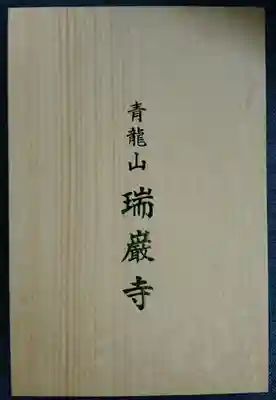 青龍山 瑞巖寺